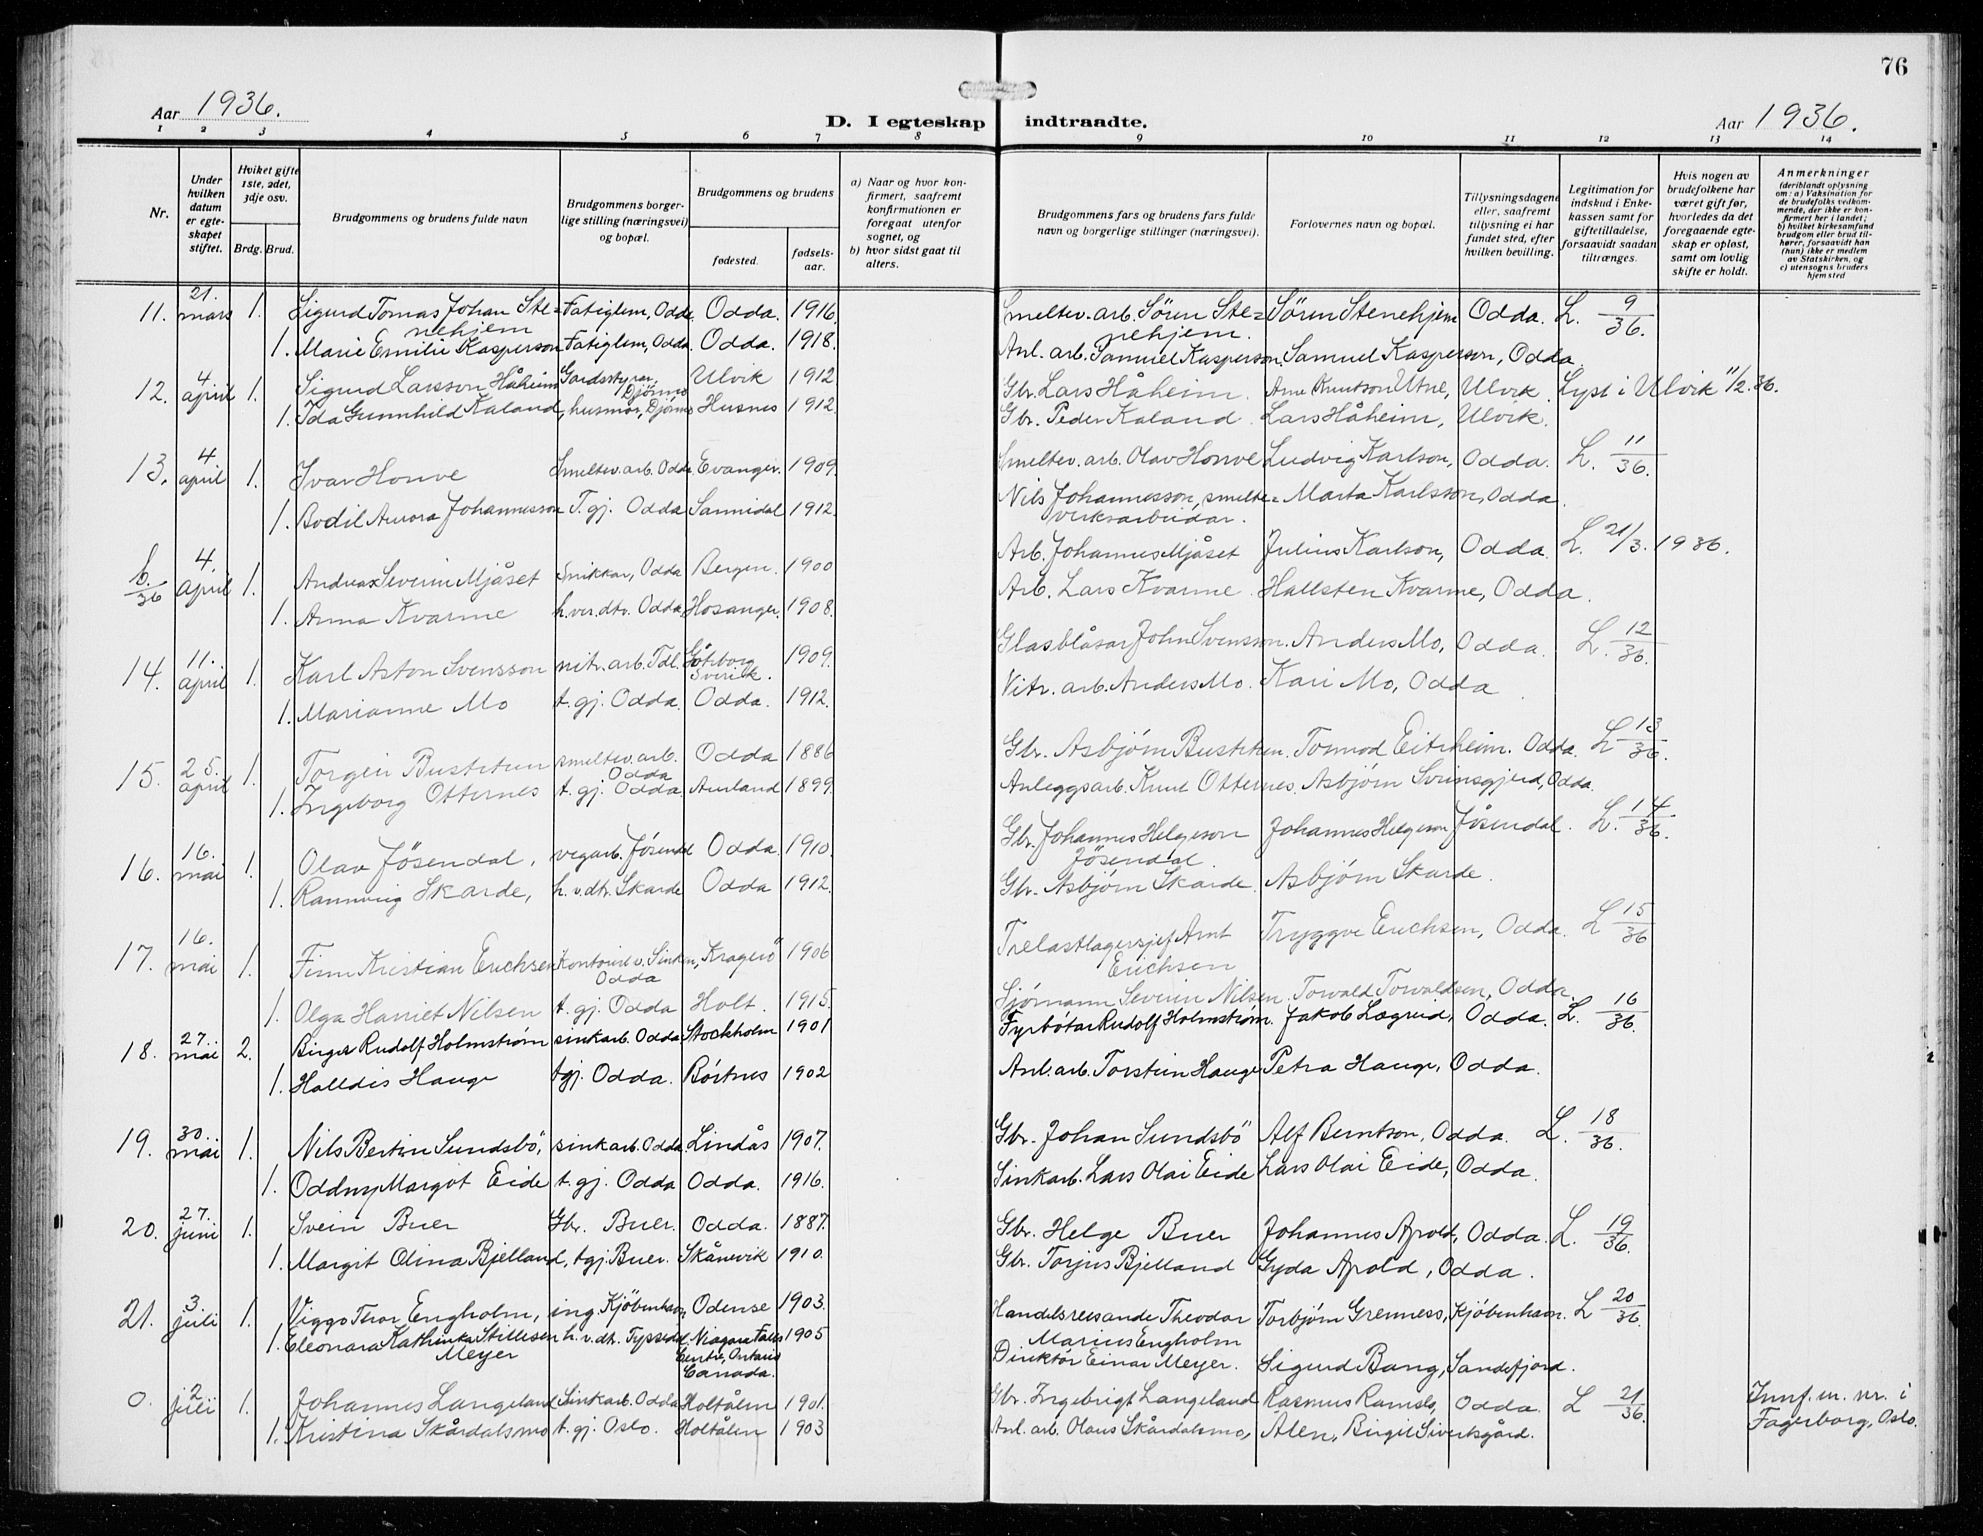 76
Aar 1936.
D. I egteskap indtraadte.
Aar 1936.
1 2 3 4 5 6 7 8 9 10 11 12 13 14
Nr.
Under hvilken datum er egteskapet stiftet.
Hviket gifte 1ste, 2det, 3dje osv.
Brdg. Brud.
Brudgommens og brudens fulde navn
Brudgommens borgerlige stilling (næringsvei) og bopæl.
Brudgommens og brudens
fødested.
fødselsaar.
a) Naar og hvor konfirmert, saafremt konfirmationen er foregaat utenfor sognet, og
b) hvor sidst gaat til alters.
Brudgommens fars og brudens fars fulde navn og borgerlige stillinger (næringsvei).
Forlovernes navn og bopæl.
Tillysningsdagene eller, saafremt tillysning ei har fundet sted, efter hvilken bevilling.
Legitimation for indskud i Enkekassen samt for giftetilladelse, forsaavidt saadan tiltrænges.
Hvis nogen av brudefolkene har været gift før, hvorledes da det foregaaende egteskap er opløst, samt om lovlig skifte er holdt.
Anmerkninger
(deriblandt oplysning om: a) Vaksination for de brudefolks vedkommende, der ikke er konfirmert her i landet; b) hvilket kirkesamfund brudgom eller brud tilhører, forsaavidt han (hun) ikke er medlem av Statskirken, og c) utensogns bruders hjemsted
11. 21. mars 1. Sigurd Tomas Johan Stenehjem Fatiglem, Odda Odda. 1916. Smeltev. arb. Sören Stenehjem. Sören Stenehjem Odda. L. 9/36.
1. Marie Emilie Kasperson Fatiglem, Odda. Odda. 1918. Anl. arb. Samuel Kasperson. Samuel Kasperson, Odda
12. 4 april 1. Sigurd Larsson Håheim Gardsstyrar, Djönno Ulvik 1912 Gbr. Lars Håheim. Arne Knutson Utne, Ulvik. Lyst i Ulvik 11/2.36.
1. Ida Gunnhild Kaland, husmor, Djönno Husnes 1912. Gbr. Peder Kaland. Lars Håheim, Ulvik.
13. 4 april 1. Ivar Honve Smeltev. arb. Odda Evanger. 1909. Smeltev. arb. Olav Honve Ludvig Karlson, Odda. L. 11/36.
1. Bodil Aurora Johannesson T. gj. Odda Sannidal 1912. Nils Johannesson, smelteverksarbeidar. Marta Karlsson, Odda
b./36 4. april 1. Andreas Severin Mjåset Snikkar, Odda Bergen. 1900 Arb. Johannes Mjåset Julius Karlson, Odda. L. 21/3. 1936.
1. Anna Kvarme h.ver.dtr. Odda Hosanger. 1908. Arb. Lars Kvarme Hallsten Kvarme, Odda.
14. 11. april 1. Karl Anton Svensson nitr. arb. Tdl. Göteborg Sverik. 1909. Glasblåsar John Svensson. Anders Mo, Odda. L. 12/36.
1. Marianne Mo t. gj. Odda. Odda. 1912. Nitr. arb. Anders Mo. Kari Mo, Odda
15. 25. april 1. Torgeir Busteten smeltev. arb. Odda Odda 1886 Gbr. Asbjörn Busteten. Tormod Eitrheim. Odda. L 13/36.
1. Ingeborg Otternes t. gj. Odda Aurland 1899. Anleggsarb. Knut Otternes. Asbjörn Sveinsgjerd, Odda.
16. 16. mai 1. Olav Jösendal, vegarb. Jösendal Odda. 1910. Gbr. Johannes Helgeson Jösendal. Johannes Helgeson Jösendal. L. 14/36.
1. Rannveig Skarde, h. v.dtr. Skarde Odda 1912. Gbr. Asbjörn Skarde. Asbjörn Skarde.
17. 16. mai 1. Finn Kristian Erichsen Kontorist v. Sinken, Odda Kragerö 1906 Trelastlagersjef Arnt Erichsen Tryggve Erichsen, Odda. L 15/36
1. Olga Harriet Nilsen t. gj. Odda Holt. 1915. Sjömann Severin Nilsen. Torvald Torvaldsen, Odda.
18. 27. mai 2. Birger Rudolf Holmström sinkarb. Odda Stockholm 1901 Fyrbötar Rudolf Holmström. Jakob Lægreid, Odda. L. 16/36.
1. Halldis Hauge tgj. Odda. Börtnes 1902 Anl. arb. Torstein Hauge Petra Hauge, Odda.
19. 30. mai 1. Nils Bertin Sundsbö, sinkarb. Odda. Lindås 1907. Gbr. Johan Sundsbö Alf Berntson, Odda. L. 18/36.
1. Oddny Margot Eide t. gj. Odda Odda. 1916. Sinkarb. Lars Olai Eide Lars Olai Eide, Odda.
20. 27. juni 1. Svein Buer Gbr. Buer. Odda. 1887. Gbr. Helge Buer Johannes Apold, Odda. L. 19/36.
1. Margit Olina Bjelland, tgj. Buer. Skånevik 1910. Gbr. Torjus Bjelland Gyda Apold, Odda.
21. 3 juli 1. Viggo Thor Engholm, ing. Kjöbenhavn, Odense 1903. Handelsreisande Theodor Marius Engholm Torbjörn Grenness, Kjöbenhavn. L 20/36.
1. Eleonara Kathinka Stillesen Meyer h. v. dtr. Tyssedal, Niagara Falls Centre, Ontario Canada. 1905 Direktör Einar Meyer. Sigurd Bang, Sandefjord.
0. 2 juli 1. Johannes Langeland Sinkarb. Odda Holtålen 1901. Gbr. Ingebrigt Langeland Rasmus Ramslo, Odda. L 21/36. Innf. m. nr. i Fagerborg, Oslo.
1. Kristina Skårdalsmo t. gj. Oslo. Holtålen 1903 Anl. arb. Olaus Skårdalsmo, Ålen, Birgit Sivertsgård.